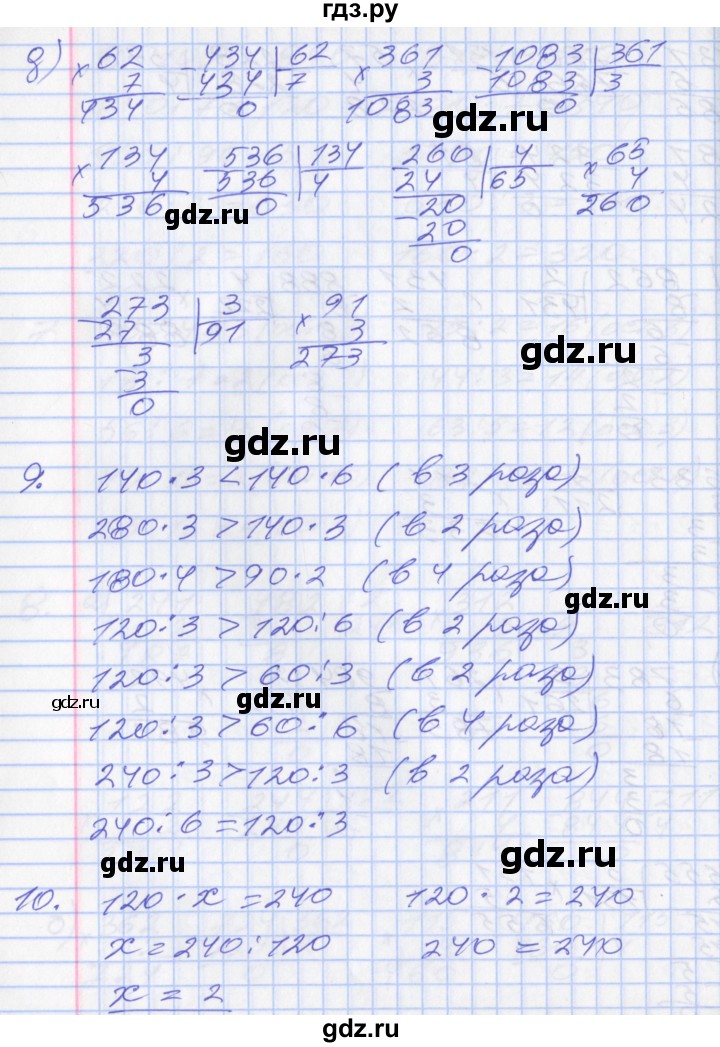 гдз.ру
д) × 62 − 434 | 62 × 361 − 1083 | 361
7 434 7 3 1083 3
434 0 1083 0
gdz.ru
× 134 − 536 | 134 − 260 | 4 × 65
4 536 4 24 65 4
536 0 − 20 260
20
0
gdz.ru
− 273 | 3 × 91
27 91 3
− 3 273
3
0
gdz.ru
gdz.ru
9. 140·3 < 140·6 (в 3 раза)
280·3 > 140·3 (в 2 раза)
180·4 > 90·2 (в 4 раза)
gdz.ru
120:3 > 120:6 (в 2 раза)
120:3 > 60:3 (в 2 раза)
gdz.ru gdz.ru
120:3 > 60:6 (в 4 раза)
240:3 > 120:3 (в 2 раза)
gdz.ru
240:6 = 120:3
gdz.ru gdz.ru
10. 120·x = 240 120·2 = 240
x = 240:120 240 = 240
x = 2
gdz.ru